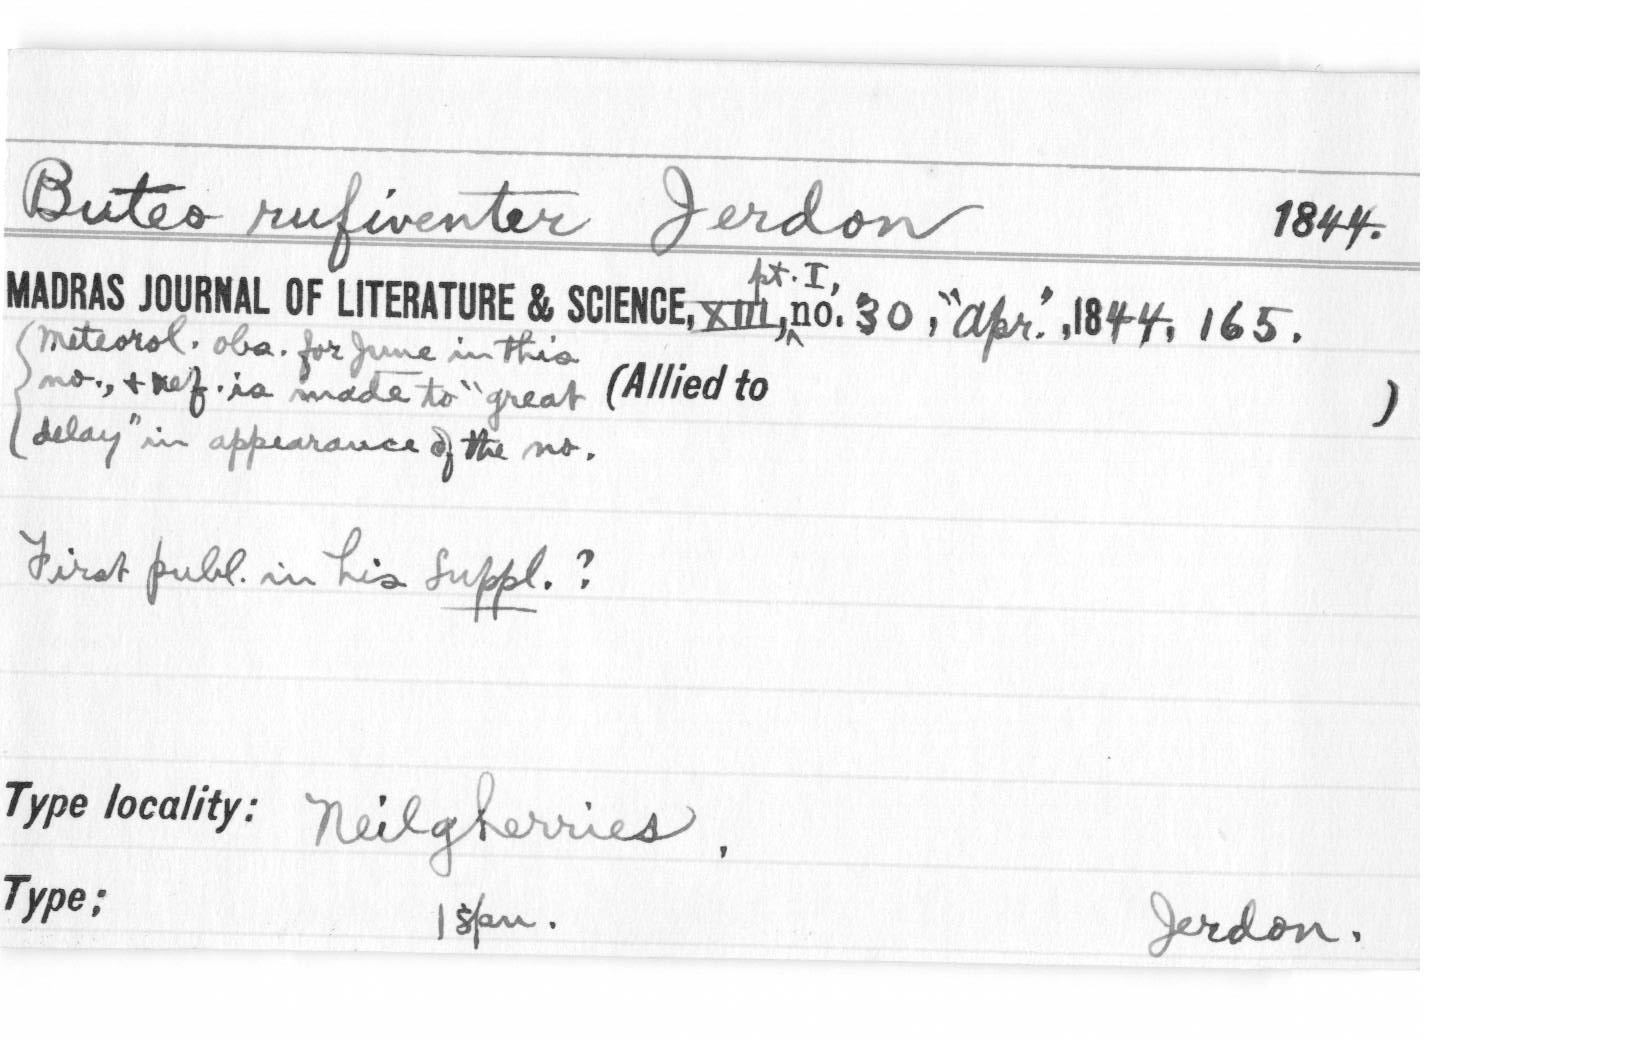 Buteo rufiventer Jerdon 1844.
MADRAS JOURNAL OF LITERATURE & SCIENCE, XIII, pt. I, no. 30, "Apr.", 1844, 165.
Meteorol. obs. for June in this
no., + ref. is made to "great (Allied to )
delay" in appearance of the no.
First publ. in his Suppl. ?
Type locality: Neilgherries,
Type; 1 spn. Jerdon.